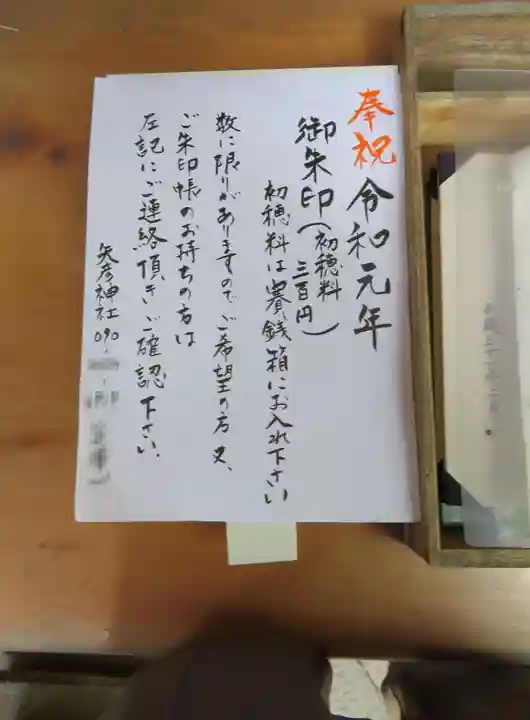 奉祝令和元年
御朱印(初穂料三百円)
初穂料は賽銭箱にお入れ下さい
数に限りがありますのでご希望の方又、
ご朱印帳のお持ちの方は
左記にご連絡頂きご確認下さい、
矢彦神社 090-